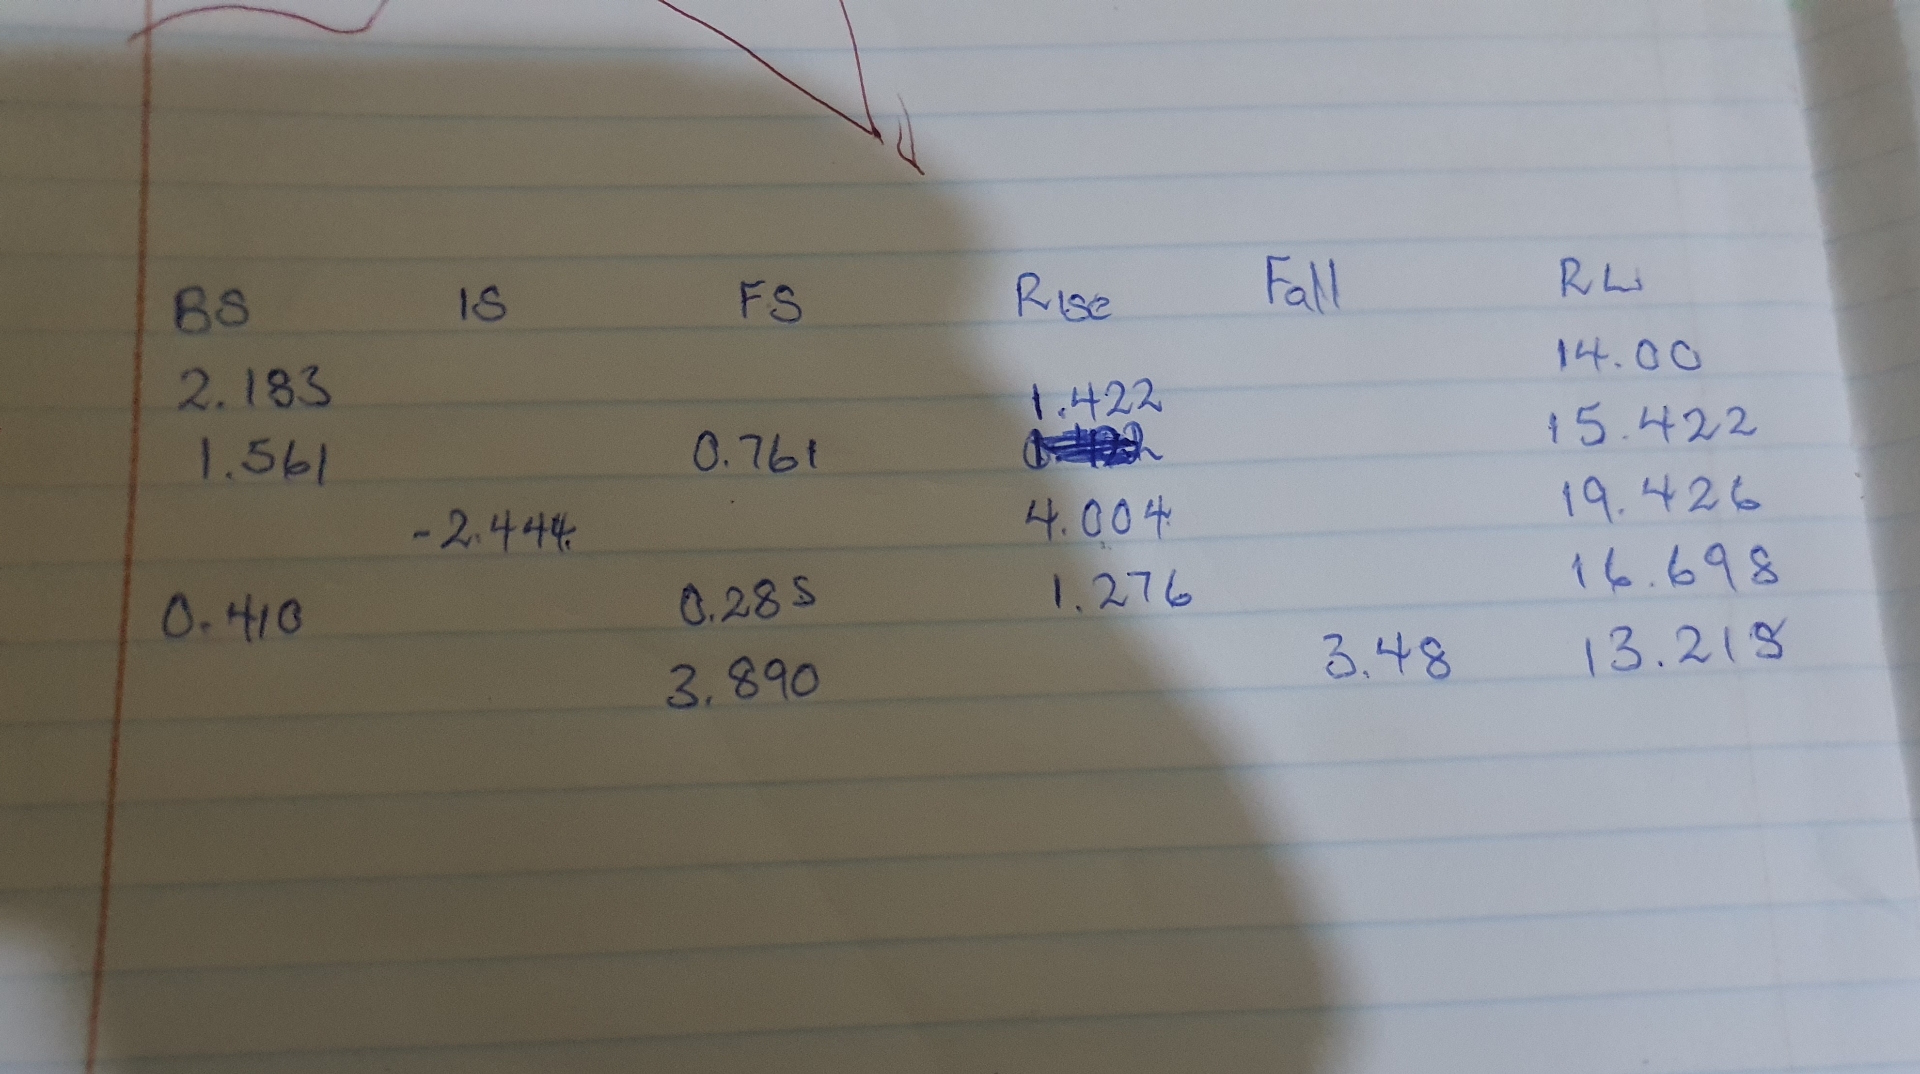 BS IS FS Rise Fall RL
14.00
2.183 1.422
1.561 0.761 15.422
-2.444 4.004 19.426
0.410 0.285 1.276 16.698
3.890 3.48 13.218